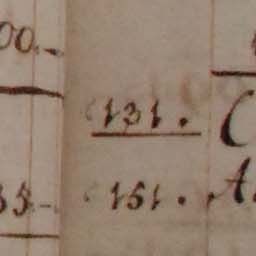 00.-
131. C
35- 151. A